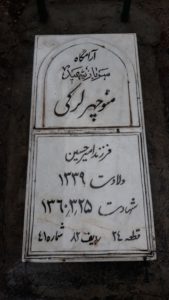 آرامگاه
سرباز شهید
منوچهر لرکی
فرزند امیرحسین
ولادت ۱۳۳۹
شهادت ۱۳۶۰،۳،۲۵
قطعه ۲۴ ردیف ۸۲ شماره ۴۱